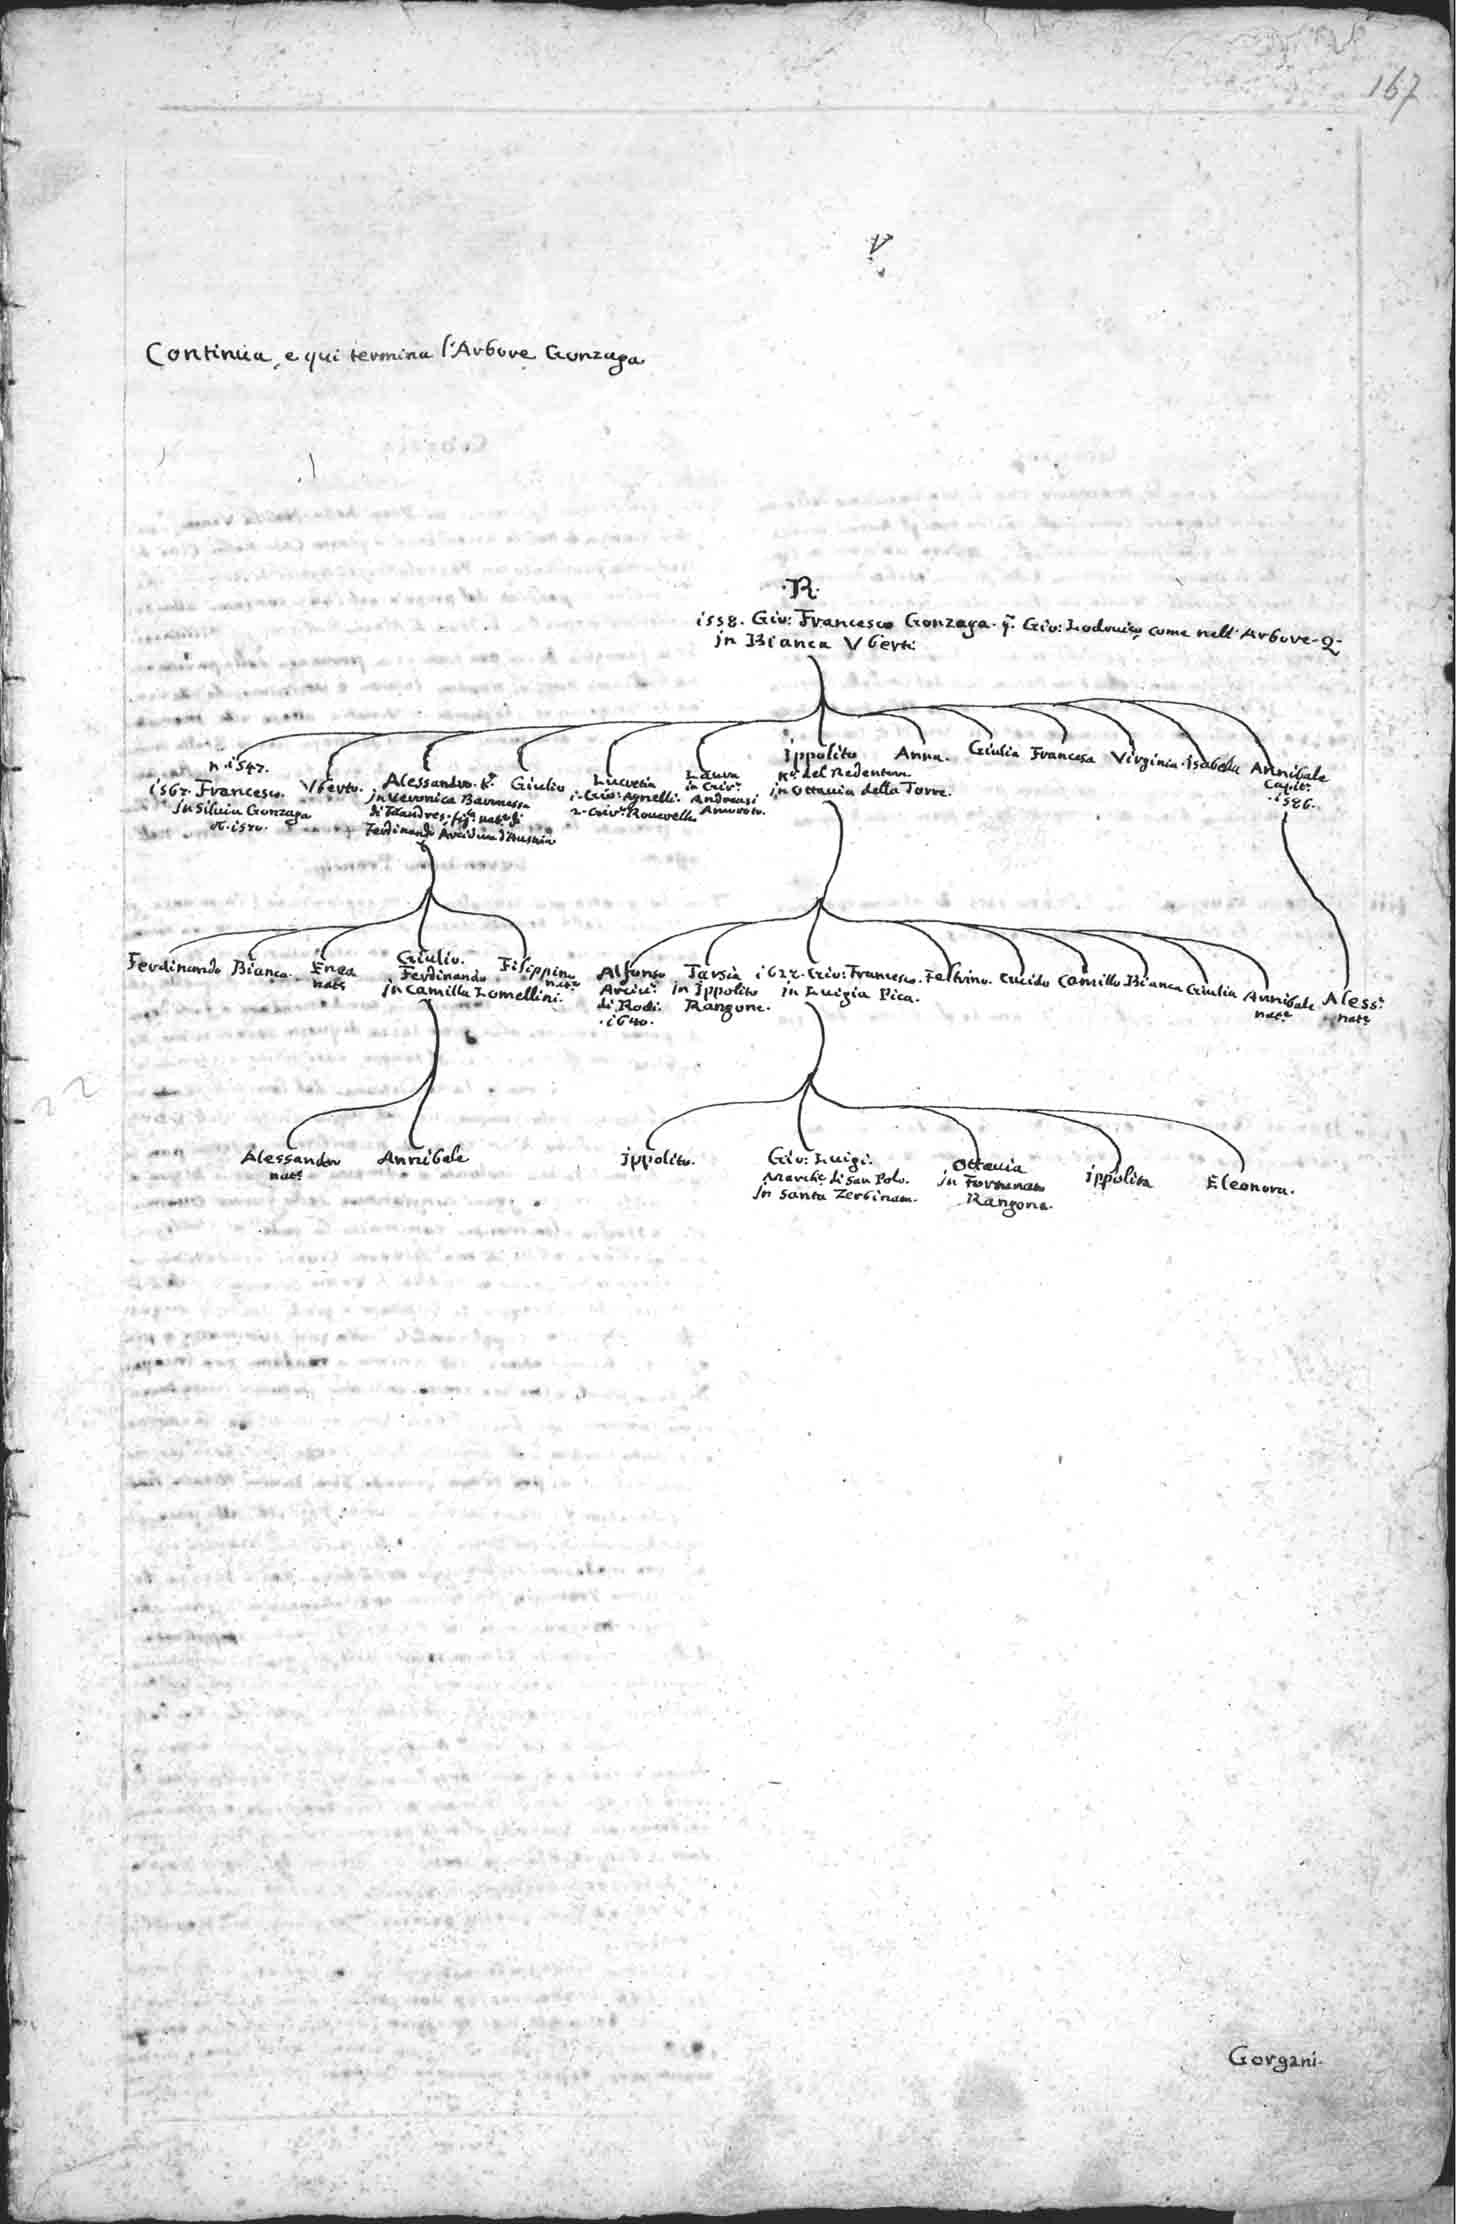 167
V
Continua, e qui termina l'Arbore Gonzaga
·R·
1558. Gio: Francesco Gonzaga. q. Gio: Lodovico come nell'Arbore. Q.
jn Bianca Vberti
n. 1547.
1567. Francesco.
jn Silvia Gonzaga
Vberto.
Alessandro. K.r
jn Veronica Baronessa
di Fiandres. fig.a nat.e di
Ferdinando Arciduca d'Austria
Giulio
Lucretia
1. Gio: Agnelli.
2. Rovevella
Laura
in
Andreasi
Ippolito
K.r del Redentore.
jn Ottavia della Torre.
Anna.
Giulia
Francesca
Virginia.
Isabella
Annibale
Capit.o
·1586.
Ferdinando
Bianca.
Enea
nat.e
Giulio.
Ferdinando
jn Camilla Lomellini.
Filippino
nat.e
Alfonso
di Rodi.
·1640.
Tarsia
in Ippolito
Rangone.
1622. Gio: Francesco.
jn Luigia Pica.
Feltrino.
Lucido
Camillo
Bianca
Giulia
Annibale
nat.e
Aless.o
nat.e
Alessandro
nat.e
Annibale
Jppolito.
Gio: Luigi.
March.e di San Polo.
jn Santa Zerbinati.
Ottavia
jn
Rangone.
Ippolita
Eleonora.
Gorgani.